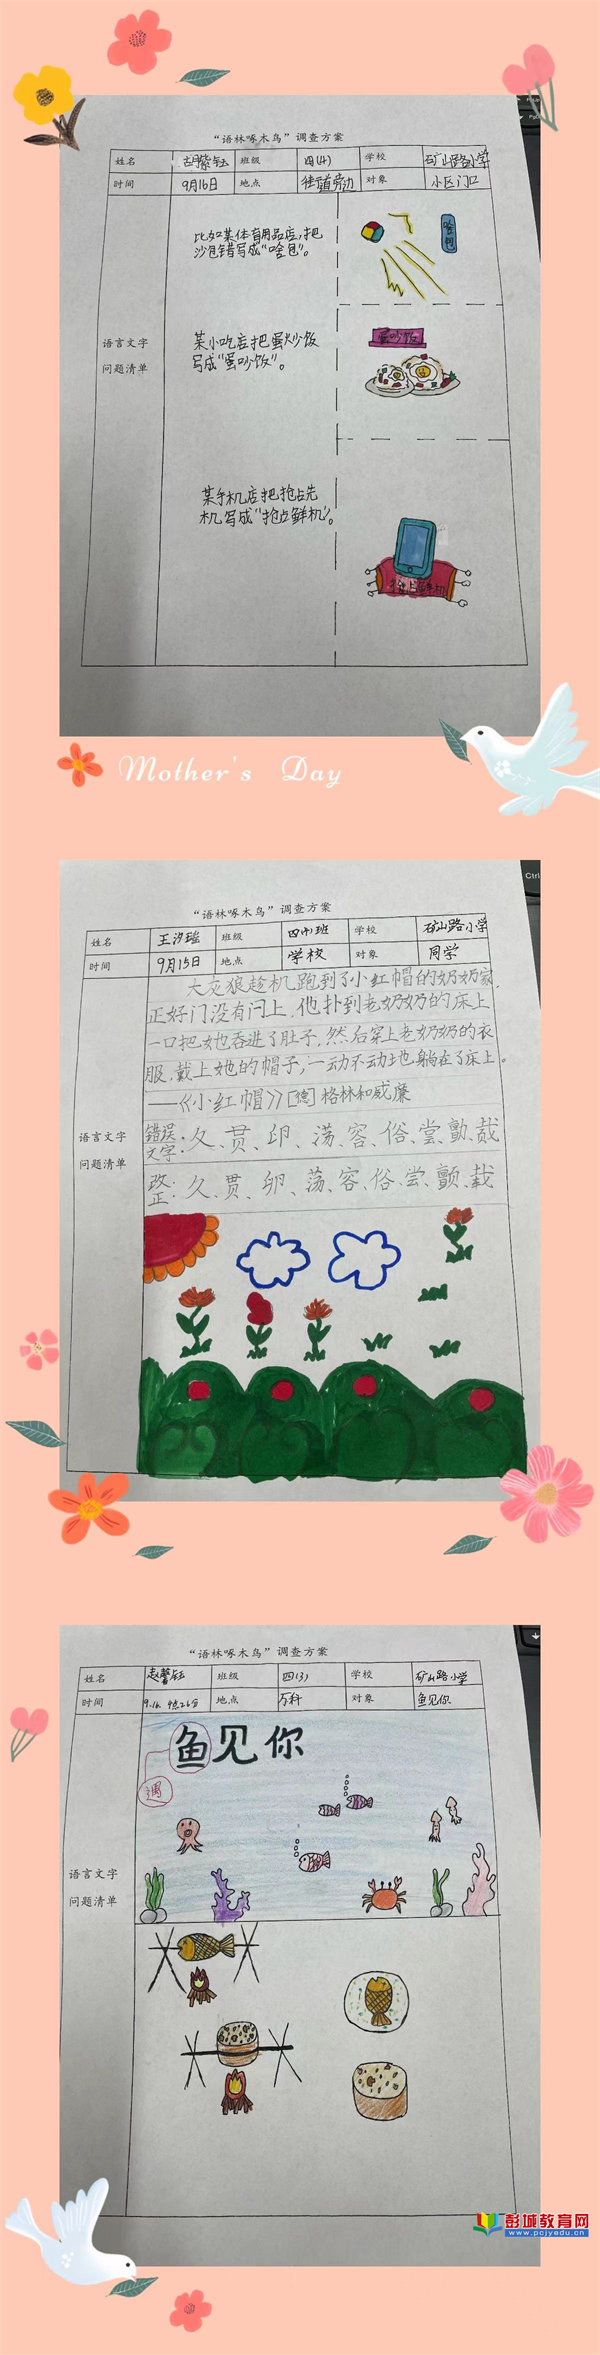 “语林啄木鸟”调查方案
姓名 胡紫钰 班级 四(4) 学校 矿山路小学
时间 9月16日 地点 街道旁边 对象 小区门口
比如某体育用品店，把
沙包错写成“啥包”。
啥包
语言文字
问题清单
某小吃店把蛋炒饭
写成“蛋吵饭”。
蛋吵饭
某手机店把抢占先
机写成“抢占鲜机”。
抢占鲜机
Mother's Day
Ctrl
“语林啄木鸟”调查方案
姓名 王汐瑞 班级 学校 矿山路小学
时间 9月15日 地点 学校 对象 同学
大灰狼趁机跑到了小红帽的奶奶家，
正好门没有闩上，他扑到老奶奶的床上
一口把她吞进了肚子，然后穿上老奶奶的衣
服，戴上她的帽子，一动不动地躺在了床上。
——《小红帽》[德]格林和威廉
语言文字
问题清单
错误
文字：久、贯、卬、荡、容、俗、尝
改
正：久、贯、卵、荡、容、俗、尝、颤、载
“语林啄木鸟”调查方案
姓名 赵馨钰 班级 四(3) 学校 矿山路小学
时间 9.16. 9点26分 地点 万科 对象 鱼见你
鱼见你
遇
语言文字
问题清单
彭城教育网
www.pcjyedu.cn